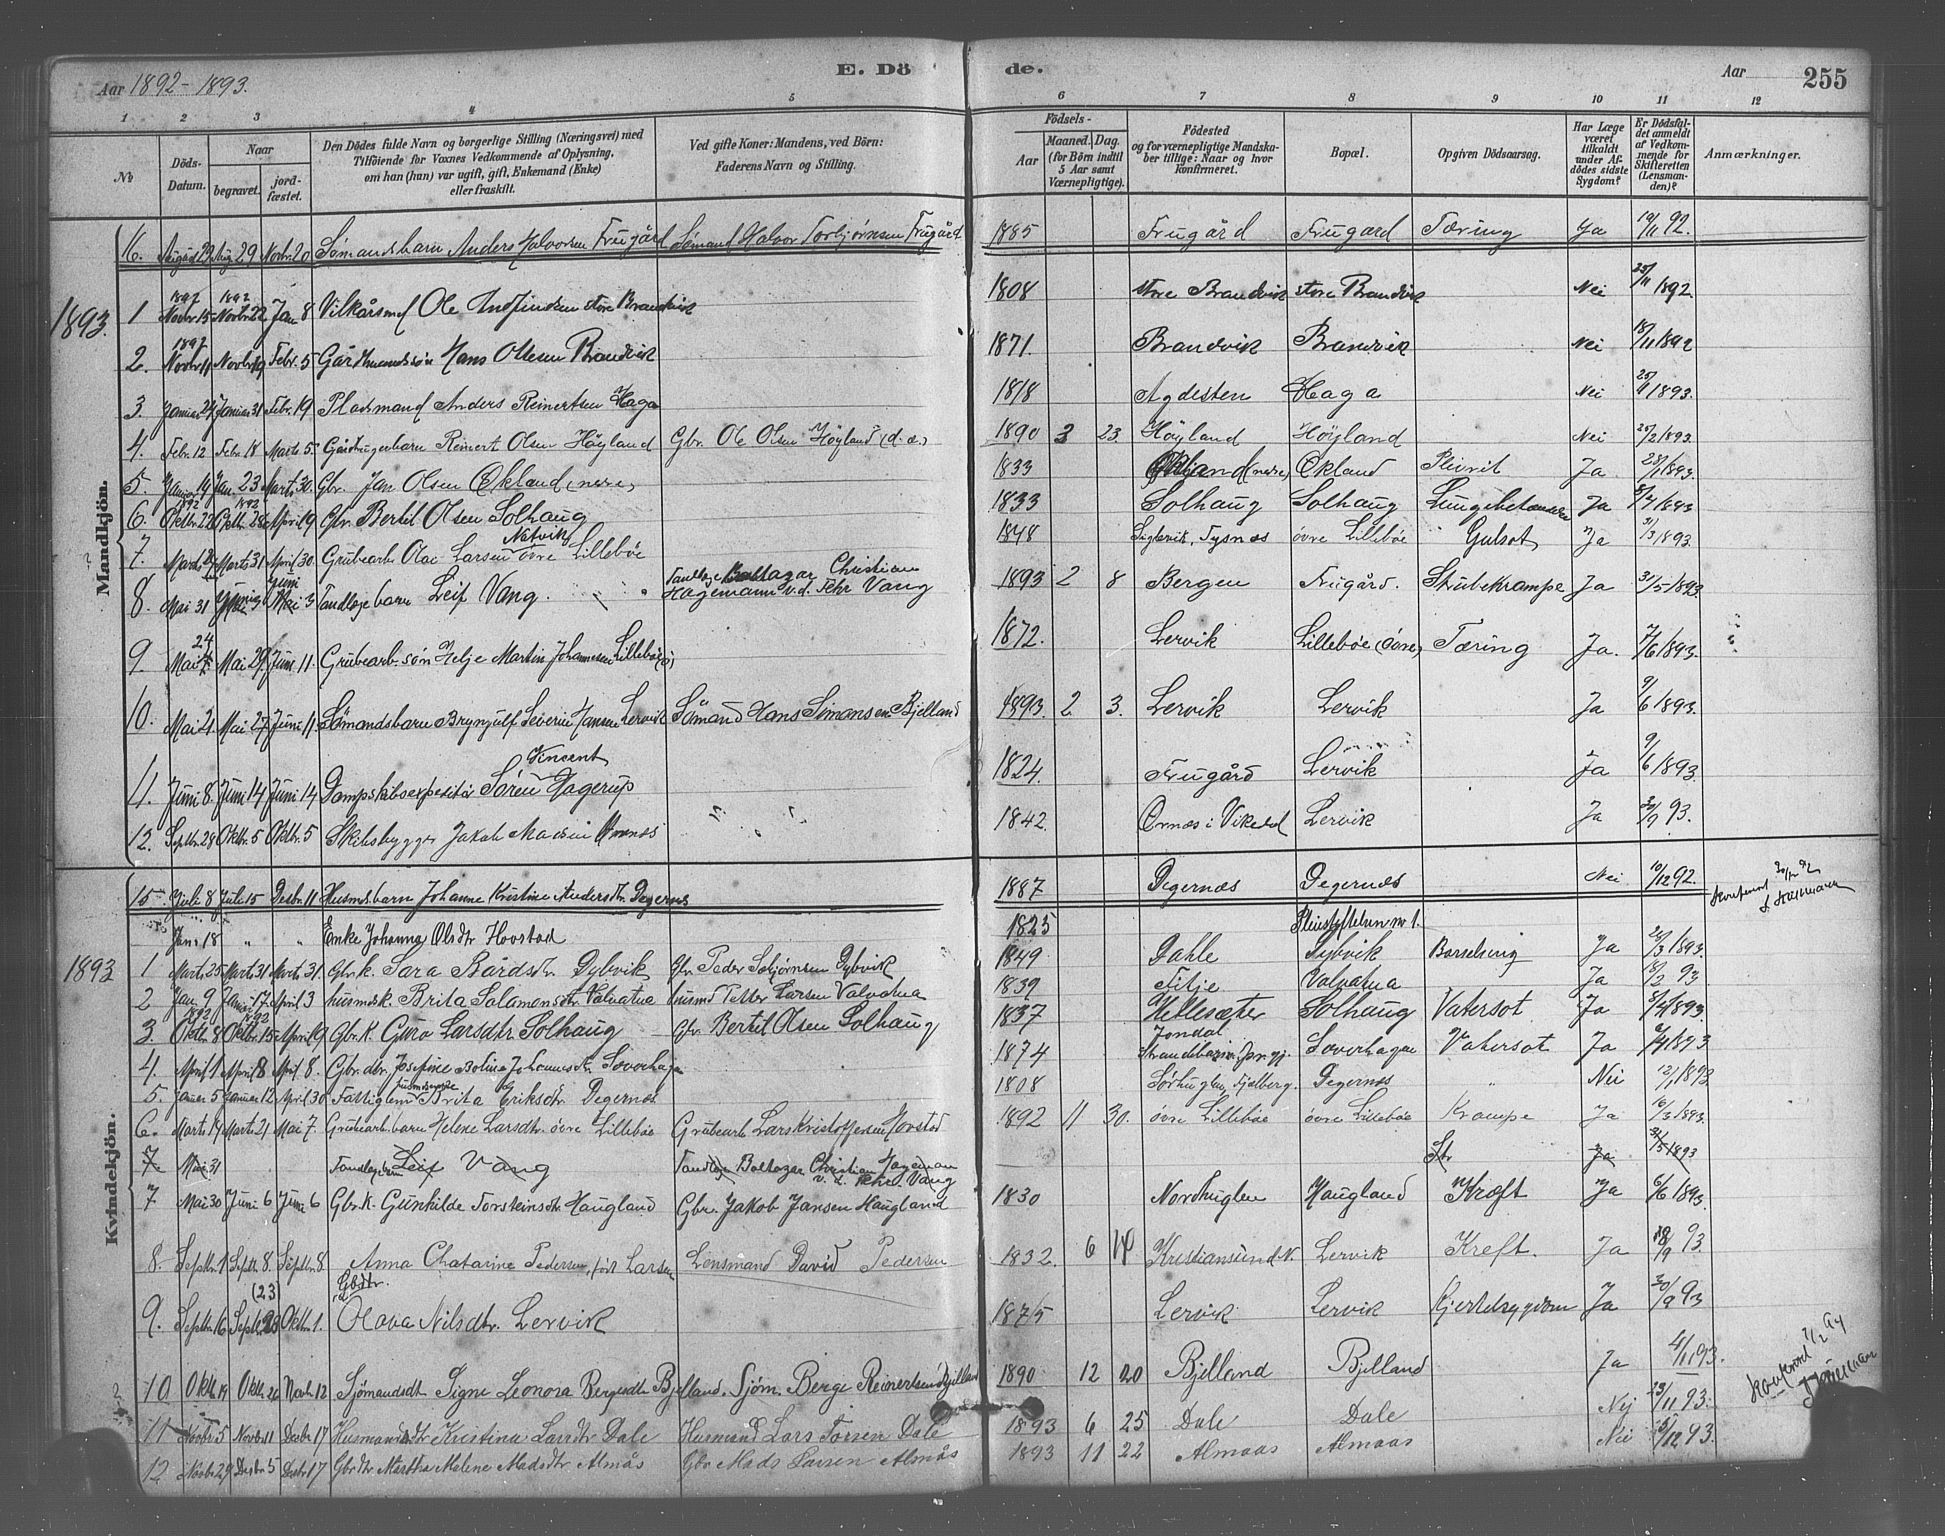 Aar 1892-1893.
E. Dö de.
Aar 255
1 2 3 4 5 6 7 8 9 10 11 12
№ Döds-Datum. Naar begravet. jordfæstet. Den Dödes fulde Navn og borgerlige Stilling (Næringsvei) med Tilföiende for Voxnes Vedkommende af Oplysning, om han (hun) var ugift, gift, Enkemand (Enke) eller fraskilt. Ved gifte Koner: Mandens, ved Börn: Faderens Navn og Stilling. Födsels- Aar Maaned. Dag. (for Börn indtil 5 Aar samt Værnepligtige). Födested og for værnepligtige Mandskaber tillige: Naar og hvor konfirmeret. Bopæl. Opgiven Dödsaarsag. Har Læge været tilkaldt under Afdödes sidste Sygdom? Er Dödsfaldet anmeldt af Vedkommende for Skifteretten (Lensmanden)? Anmærkninger.
Mandkjön.
16. August 23 Aug 29 Novbr. 20 Sømandsbarn Anders Halvorsen Frugård Sømand Halvor Torbjørnsen Frugård 1885 Frugård Frugård Tæring Ja 19/11 92.
1893. 1 1892 Novbr 15 1892 Novbr. 22 Jan 8 Vilkårsmd Ole store Brandvik 1808 store Brandvik store Brandvik Nei 25/11 1892
2. 1892 Novbr 11 Novbr 19 Febr. 5 Gårdmandssøn Hans Olsen Brandvik 1871. Brandvik Brandvik Nei 18/11 1892
3. Januar 24 Januar 31 Febr. 19 Pladsmand Anders Reinertsen Haga 1818 Agdesten Haga Nei 25/1 1893.
4. Febr. 12 Febr. 18 Marts 5. Gårdbrugerbarn Reinert Olsen Höyland Gbr. Ole Olsen Höyland (d. æ.) 1890 3 23. Höyland Höyland Nei 20/2 1893.
5. Januar 14 Jan. 23 Marts 30. Gbr. Jan Olsen Økland (nere) 1833 Økland (nere) Økland Plevrit Ja 28/1 1893.
6. 1892 Oktbr. 22 1892 Oktbr. 28 April 9 Gbr. Bertel Olsen Solhaug 1833 Solhaug Solhaug Lungebetændelse Ja 8/4 1893
7. Marts 24 Marts 31 April 30. Grubearb. Olai Larsen Natvik övre Lillebøe 1848 Siglevik, Tysnes övre Lillebøe Gulsot Ja 31/3 1893.
8. Mai 31 Juni 3 Juni 3 Tandlægebarn Leif Vang. Tandlæge Baltazar Christian Hagemann v.d. Fehr Vang 1893 2 8 Bergen Frugård. Strubekrampe Ja 31/5 1893.
9. Mai 24 Mai 29 Juni 11. Grubearb. søn Helje Martin Johannesen Lillebøe (ö) 1872. Lervik Lillebøe (övre) Tæring Ja. 7/6 1893.
10. Mai 21. Mai 27 Juni 11 Sömandsbarn Brynjulf Severin Hansen Lervik Sömand Hans Simonsen Bjelland 1893. 2. 3. Lervik Lervik Ja 9/6 1893.
11. Juni 8. Juni 14 Juni 14 Dampskibsexpeditör Sören Vincent Hagerup 1824. Frugård Lervik Ja 9/6 1893.
12. Septbr. 28 Oktbr. 5 Oktbr. 5 Skibsbygger Jakob Madsen Ornæs 1842. Ornæs i Vikedal Lervik Ja 30/9 93.
Kvindekjön.
15. Juli 8 Juli 15 Desbr. 11 Husmdsbarn Johanne Kristine Andersdtr. Degernæs 1887 Degernæs Degernæs Nei 10/12 92.
Jan. 18 " " Enke Johanna Olsdtr Hovstad 1825 Pleiestiftelsen nr 1.
1893 1 Marts 25 Marts 31 Marts 31. Gbr.k. Sara Bårdsdtr. Dybvik Gbr. Peder Sebjørnsen Dybvik 1849 Dahle Dybvik Barselseng Ja 28/3 1893.
2 Jan. 9 Januar 17 April 3 husmdsk. Brita Salamonsdtr. Valvatna husmd Petter Larsen Valvatna 1839 Fitje Valvatna Ja 8/2 93
3. 1892 Oktbr. 8 1892 Oktbr. 15 April 9 Gbr.k. Guro Larsdtr. Solhaug Gbr. Bertel Olsen Solhaug 1837 Hellesæter Solhaug Vatersot Ja 8/4 1893.
4. April 1 April 8 April 8. Gbr. dtr. Josefine Boline Johannesdtr. Soverhagen 1874 Jondal Soverhagen Vatersot Ja 6/4 1893
5. Januar 5 Januar 12 April 30 Fattiglem husmdsenke Brita Eriksdtr. Degernæs 1808 Sørhuglen, Fjelberg. Degernæs " Nei 12/1 1893
6. Marts 14 Marts 21 Mai 7. Grubearb. barn Helene Larsdtr. övre Lillebøe Grubearb. Lars Kristoffersen Hovstad 1892 11 30. övre Lillebøe övre Lillebøe Krampe Ja 16/3 1893.
7. Mai 31 Tandlægebarn Leif Vang Tandlæge Baltazar Christian Hageman v. d. Fehr Vang Str Ja 31/5 1893
7 Mai 30 Juni 6 Juni 6 Gbr.k. Gunhilde Torsteinsdtr Haugland Gbr. Jakob Jansen Haugland 1830 Nordhuglen Haugland Kræft Ja 6/6 1893.
8. Septbr. 1 Septbr. 8. Septbr. 8 Anna Chatarine Pedersen, født Larsen Lensmand David Pedersen 1832. 6 Kristiansund N. Lervik Kreft. Ja 18/9 93.
9. Septbr. 16 Septbr. 23 (23) Oktbr. 1. Gbdtr. Olava Nilsdtr. Lervik 1875 Lervik Lervik Hjertesygdom Ja 30/9 93
10 Oktbr. 19 Oktbr. 26 Novbr. 12 Sjömandsdt Signe Leonora Bergesdtr Bjelland. Sjøm. Berge Reinertsen Bjelland 1890 12 20 Bjelland Bjelland Ja 4/11 93.
11 Novbr. 5 Novbr. 11 Desbr. 17 Husmandsdtr Kristina Larsdtr Dale Husmand Lars Torsen Dale 1893 6 25 Dale Dale Nej 23/11 93.
12 Novbr. 29 Desbr. 5 Desbr. 17 Gbr.dtr Martha Malene Madsdtr Almås Gbr Mads Larsen Almås 1893 11 22 Almaas Almaas Nei 5/12 93.